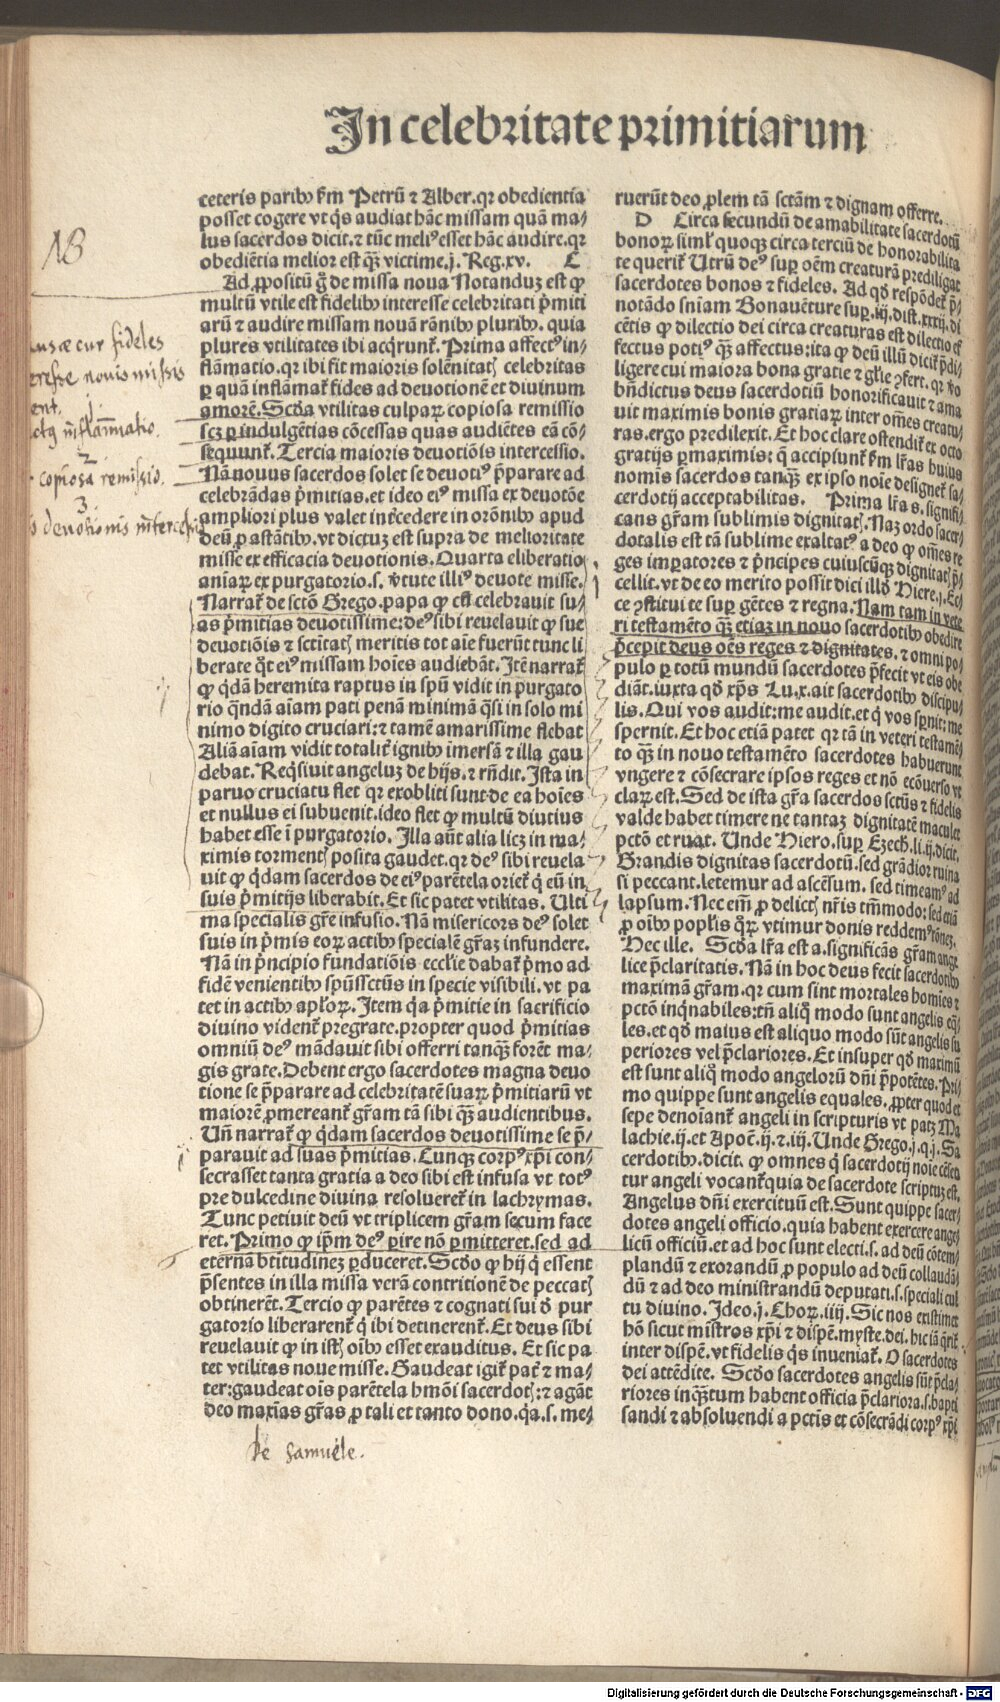 In celebritate primitiarum
ceteris parib⁹ ẜm Petrū ⁊ Alber. qꝛ obedientia
posset cogere vt q̄s audiat hāc missam quā ma⸗
lus sacerdos dicit. ⁊ tūc meli⁹ esset hāc audire. qꝛ
obediētia melior est q̄ꝫ victime. j. Reg. xv. C
Ad ꝓpositū g̊ de missa noua Notanduꝫ est ꝙ
multū vtile est fidelib⁹ interesse celebritati p̄miti
arū ⁊ audire missam nouā rōnib⁹ plurib⁹. quia
plures vtilitates ibi acq̄runt̄. Prima affect⁹ in⸗
flāmatio. qꝛ ibi fit maioris solēnitatꝭ celebritas
ꝑ quā inflāmat̄ fides ad deuotionē et diuinum
amorē. Scďa vtilitas culpaꝝ copiosa remissio
scꝫ ꝑ indulgētias cōcessas quas audiētes eā cō⸗
sequunt̄. Tercia maioris deuotiōis intercessio.
Nā nouus sacerdos solet se deuoti⁹ p̄parare ad
celebrādas p̄mitias. et ideo ei⁹ missa ex deuotōe
ampliori plus valet int̄cedere in orōnib⁹ apud
deū ꝓ astātib⁹. vt dictuꝫ est supra de melioritate
misse ex efficacia deuotionis. Quarta eliberatio
aniaꝝ ex purgatorio. s. v̄tute illi⁹ deuote misse.
Narrat̄ de sctō Grego. papa ꝙ cū celebrauit su⸗
as p̄mitias deuotissime: de⁹ sibi reuelauit ꝙ sue
deuotiōis ⁊ sctītatꝭ meritis tot aīe fuerūt tunc li
berate q̊t ei⁹ missam hoīes audiebāt. Itē narrat̄
ꝙ q̇dā heremita raptus in spū vidit in purgato
rio q̄ndā aīam pati penā minimā q̄si in solo mi
nimo digito cruciari: ⁊ tamē amarissime flebat
Aliā aīam vidit totalit̄ ignib⁹ īmersā ⁊ illa gau
debat. Req̄siuit angeluꝫ de hijs. ⁊ rn̄dit. Ista in
paruo cruciatu flet qꝛ exobliti sunt de ea hoīes
et nullus ei subuenit. ideo flet ꝙ multū diutius
habet esse ī purgatorio. Illa aūt alia licꝫ in ma⸗
ximis tormentꝭ posita gaudet. qꝛ de⁹ sibi reuela
uit ꝙ q̇dam sacerdos de ei⁹ parētela oriet̄ q̇ eū in
suis p̄mitijs liberabit. Et sic patet vtilitas. Ulti
ma specialis gr̄e infusio. Nā misericors de⁹ solet
suis in p̄mis eoꝝ actib⁹ specialē gr̄aꝫ infundere.
Nā in p̄ncipio fundatiōis eccl̄ie dabat̄ p̄mo ad
fidē venientib⁹ spūssctūs in specie visibili. vt pa
tet in actib⁹ apl̄oꝝ. Item q̇a p̄mitie in sacrificio
diuino vident̄ pregrate. propter quod p̄mitias
omniū de⁹ mādauit sibi offerri tanq̄ꝫ forēt ma⸗
gis grate. Debent ergo sacerdotes magna deuo
tione se p̄parare ad celebritatē suaꝝ p̄mitiarū vt
maiorē ꝓmereant̄ gr̄am tā sibi q̄ꝫ audientibus.
Un̄ narrat̄ ꝙ q̇dam sacerdos deuotissime se p̄⸗
parauit ad suas p̄mitias. Cunqꝫ corp⁹ xp̄i con⸗
secrasset tanta gratia a deo sibi est infusa vt tot⁹
pre dulcedine diuina resolueret̄ in lachrymas.
Tunc petiuit deū vt triplicem gr̄am secum face
ret. Primo ꝙ ip̄m de⁹ ꝑire nō ꝑmitteret. sed ad
eternā btītudineꝫ ꝑduceret. Scďo ꝙ hij q̇ essent
p̄sentes in illa missa verā contritionē de peccatꝭ
obtinerēt. Tercio ꝙ parētes ⁊ cognati sui ď pur
gatorio liberarent̄ q̇ ibi detinerent̄. Et deus sibi
reuelauit ꝙ in istꝭ oīb⁹ esset exauditus. Et sic pa
tet vtilitas noue misse. Gaudeat igit̄ pat̄ ⁊ ma⸗
ter: gaudeat oīs parētela hmōi sacerdotꝭ: ⁊ agāt
deo maxīas gr̄as ꝓ tali et tanto dono. q̇a. s. me⸗
ruerūt deo ꝓlem tā sctām ⁊ dignam offerre.
D Circa secundū de amabilitate sacerdotū
bonoꝝ siml̄ quoqꝫ circa terciū de honorabilita
te querit̄ Utrū de⁹ suꝑ oēm creaturā prediligat
sacerdotes bonos ⁊ fideles. Ad qď respōdet̄ p̄⸗
notādo sn̄iam Bonauēture suꝑ. iij. dist. xxxij. di
cētis ꝙ dilectio dei circa creaturas est dilectio ef
fectus poti⁹ q̄ꝫ affectus: ita ꝙ deū illū dicit̄ p̄di⸗
ligere cui maiora bona gratie ⁊ gl̄ie ꝯfert. qꝛ v̊o
bn̄dictus deus sacerdotiū honorificauit ⁊ ama
uit maximis bonis gratiaꝝ inter om̄es creatu⸗
ras. ergo predilexit. Et hoc clare ostendit̄ ex octo
gratijs ꝑmaximis: q̄ accipiunt̄ ẜm lr̄as huius
nomis sacerdos tanq̄ꝫ ex ipso noīe designet̄ sa⸗
cerdotij acceptabilitas. Prima lr̄a s. signifi⸗
cans gr̄am sublimis dignitatꝭ. Naꝫ ordo sacer⸗
dotalis est tā sublime exaltat⁹ a deo ꝙ om̄es re
ges imꝑatores ⁊ p̄ncipes cuiuscūqꝫ dignitatꝭ p̄⸗
cellit. vt de eo merito possit dici illď Hiere. j. Ec⸗
ce ꝯstitui te suꝑ gētes ⁊ regna. Nam tam in vete
ri testamēto q̄ꝫ etiaꝫ in nouo sacerdotib⁹ obedire
p̄cepit deus oēs reges ⁊ dignitates. ⁊ omni po⸗
pulo ꝑ totū mundū sacerdotes p̄fecit vt eis obe
diāt. iuxta qď xp̄s Lu. x. ait sacerdotib⁹ discipu⸗
lis. Qui vos audit: me audit. et q̇ vos spnit: me
spernit. Et hoc etiā patet qꝛ tā in veteri testamē⸗
to q̄ꝫ in nouo testamēto sacerdotes habuerunt
vngere ⁊ cōsecrare ipsos reges et nō ecōuerso vt
claꝝ est. Sed de ista gr̄a sacerdos sctūs ⁊ fidelis
valde habet timere ne tantaꝫ dignitatē maculet
pctō et ruat. Unde Hiero. suꝑ Ezech. li. ij. dicit.
Grandis dignitas sacerdotū. sed grādior ruina
si peccant. letemur ad ascēsum. sed timeam⁹ ad
lapsum. Nec em̄ ꝓ delictꝭ nr̄is tm̄modo: sed etiā
ꝓ oīb⁹ popl̄is q̊ꝝ vtimur donis reddem⁹ rōneꝫ.
Hec ille. Scďa lr̄a est a. significās gr̄am ange
lice p̄claritatis. Nā in hoc deus fecit sacerdotib⁹
maximā gr̄am. qꝛ cum sint mortales homīes ⁊
pctō inq̇nabiles: tn̄ aliq̊ modo sunt angelis eq̄⸗
les. et qď maius est aliquo modo sūt angelis su
periores vel p̄clariores. Et insuper qď maximū
est sunt aliq̊ modo angelorū dn̄i p̄potētes. Pri⸗
mo quippe sunt angelis equales. ꝓpter quod et
sepe denoīant̄ angeli in scripturis vt patꝫ Ma
lachie. ij. et Apoc̄. ij. ⁊ iij. Unde Grego. j. q. j. Sa
cerdotib⁹. dicit. ꝙ omnes q̇ sacerdotij noīe cēsen
tur angeli vocant̄ quia de sacerdote scriptuꝫ est.
Angelus dn̄i exercituū est. Sunt quippe sacer⸗
dotes angeli officio. quia habent exercere ange⸗
licū officiū. et ad hoc sunt electi. s. ad deū cōtem⸗
plandū ⁊ exorandū ꝓ populo ad deū collaudā⸗
dū ⁊ ad deo ministrandū deputati. s. speciali cul
tu diuino. Ideo. j. Choꝝ. iiij. Sic nos existimet
hō sicut mīstros xp̄i ⁊ dispē. myste. dei. hic iā q̄rit̄
inter dispē. vt fidelis q̄s inueniat̄. O sacerdotes
dei attēdite. Scďo sacerdotes angelis sūt p̄cla⸗
riores inq̄ꝫtum habent officia p̄clariora. s. bapti
sandi ⁊ absoluendi a pctīs et cōsecrādi corp⁹ xp̄i
NB
usæ cur fideles
eresse novis missis
ent. 1
ctus inflam̄atio.
2
copiosa remissio.
3
s devotionis intercessio
de Samuele.
Digitalisierung gefördert durch die Deutsche Forschungsgemeinschaft - DFG